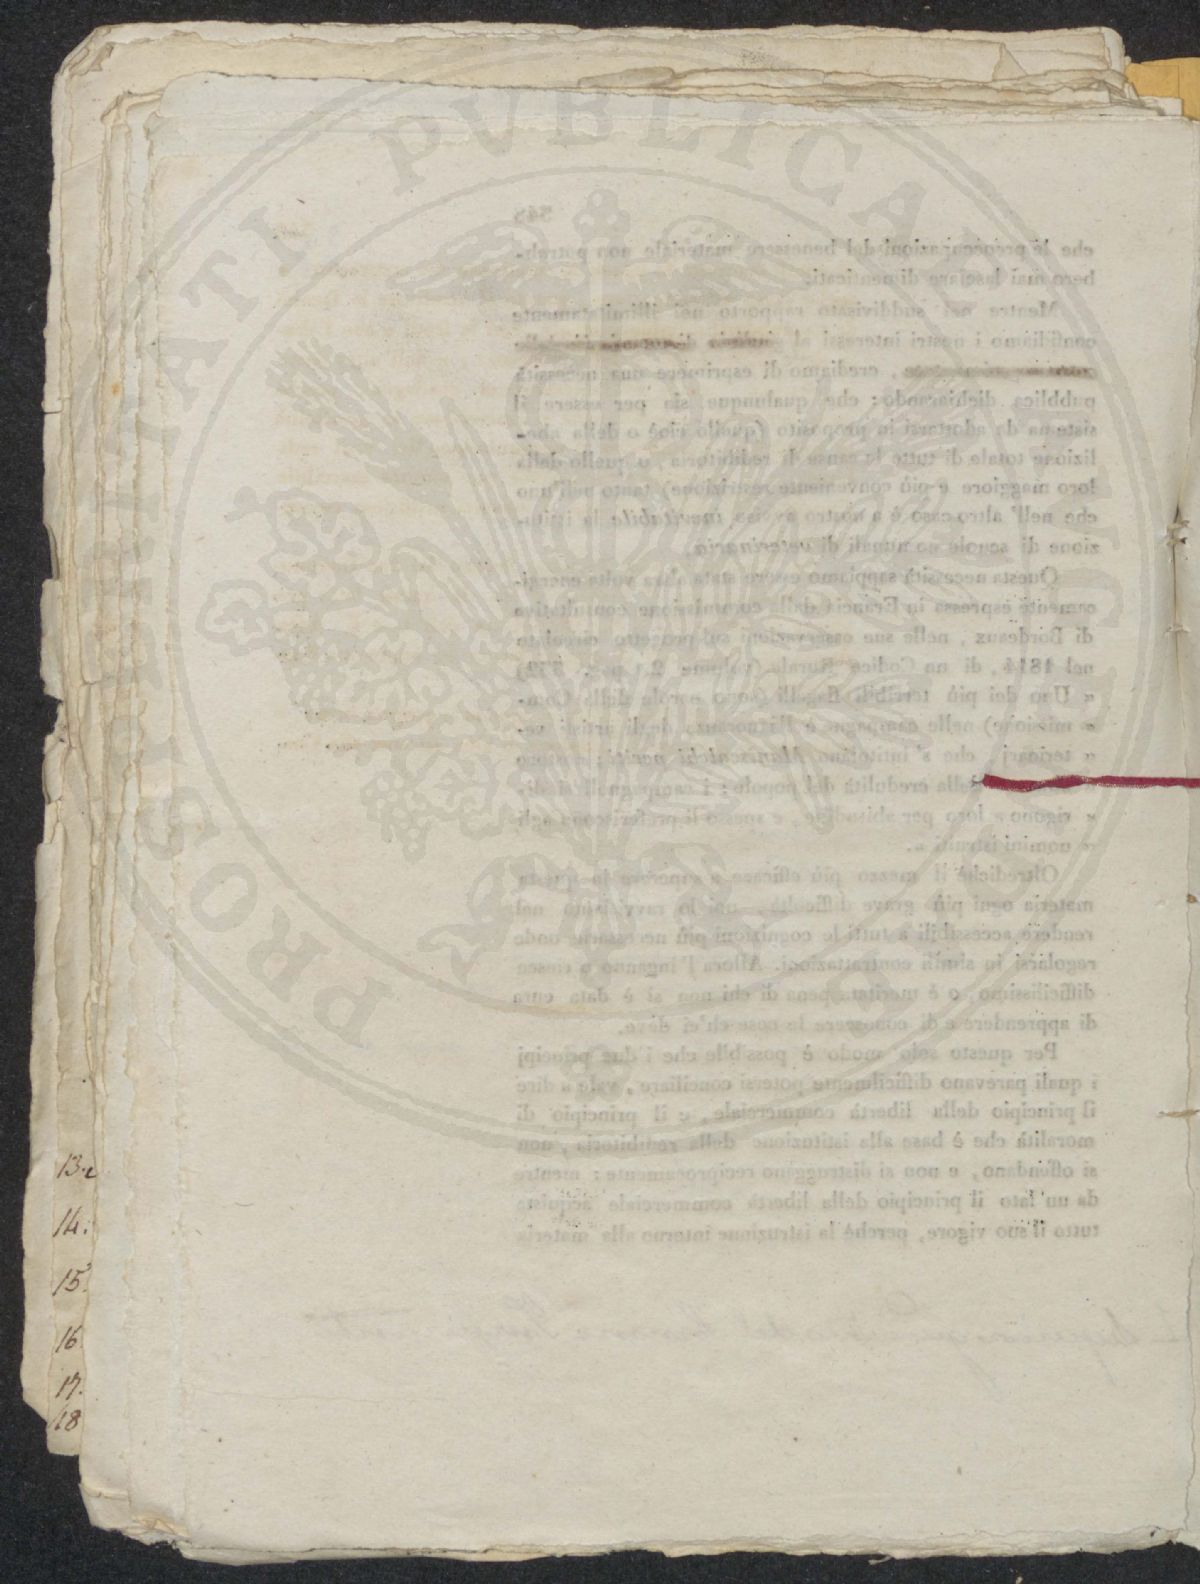 PROSPERITATI PUBLICAE
345
che le preoccupazioni del benessere materiale non potreb-
bero mai lasciare dimenticati.
Mentre nel suddivisato rapporto noi illimitatamente
confidiamo i nostri interessi al
, crediamo di esprimere una necessità
pubblica dichiarando: che qualunque sia per essere il
sistema da adottarsi in proposito (quello cioè o della abo-
lizione totale di tutte le cause di redibitoria, o quello della
loro maggiore e più conveniente restrizione) tanto nell' uno
che nell' altro caso è a nostro avviso inevitabile la istitu-
zione di scuole comunali di veterinaria.
Questa necessità sappiamo essere stata altra volta energi-
camente espressa in Francia dalla commissione consultativa
di Bordeaux, nelle sue osservazioni sul progetto circolato
nel 1814, di un Codice Rurale (volume 2.
« Uno dei più terribili flagelli (sono parole della Com-
« missione) nelle campagne è l'ignoranza degli artisti ve-
« terinarj, che s' intitolano Maniscalchi periti:
della credulità del popolo: i campagnuoli si di-
« rigono a loro per abitudine, e spesso li preferiscono agli
« uomini istruiti ».
Oltredichè il mezzo più efficace a superare in questa
materia ogni più grave difficoltà, noi lo ravvisiamo nel
rendere accessibili a tutti le cognizioni più necessarie onde
regolarsi in simili contrattazioni. Allora l' inganno o riesce
difficilissimo, o è meritata pena di chi non si è data cura
di apprendere e di conoscere le cose ch'ei deve.
Per questo solo modo è possibile che i due principj
i quali parevano difficilmente potersi conciliare, vale a dire
il principio della libertà commerciale, e il principio di
moralità che è base alla istituzione della redibitoria, non
si offendano, e non si distruggano reciprocamente: mentre
da un lato il principio della libertà commerciale acquista
tutto il suo vigore, perchè la istruzione intorno alla materia
13.
14.
15.
16.
17.
18